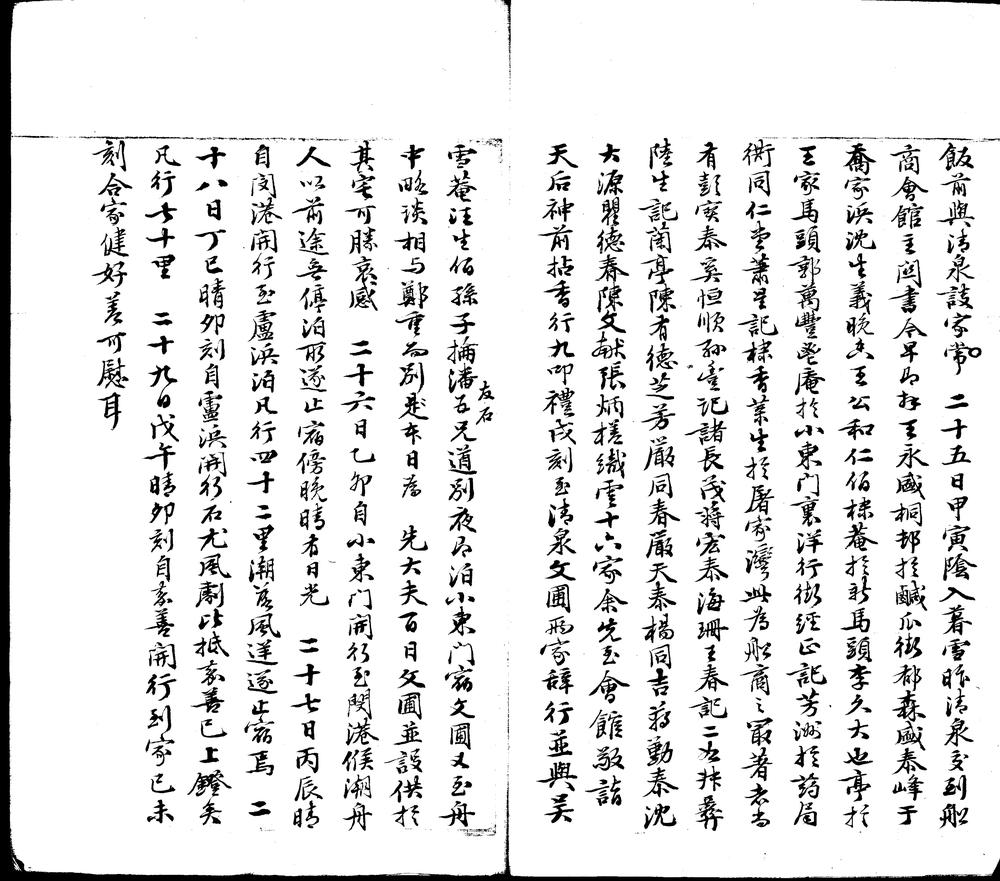 飯前與清泉談家常　二十五日甲寅陰入暮雪昨清泉交到船
商會館主閱書合早即拜王永盛桐邨於鹹瓜街郁森盛泰峰于
喬家浜沈生義晚香王公和仁伯棣菴於新馬頭李久大也亭於
王家馬頭郭萬豐庵於小東門裏洋行街經正記芳洲於藥局
衖同仁堂蕭星記棣香葉生於屠家灣此為船商之最著者尚
有彭寳泰奚恒順孫豐記諸長茂蔣宏泰海珊王春記二如彝
陸生記蘭亭陳有德芝芳嚴同春嚴天泰楊同吉蔣勤泰沈
大源瞿德春陳文獻張炳槎織雲十六家余先至會館敬詣
天后神前拈香行九叩禮戌刻至清泉文圃兩家辭行並與吴
雪菴汪生伯孫子掄潘五兄道別夜即泊小東門宿文圃又至舟
友石
中略談相與鄭重而別是本日為　先大夫百日文圃並設供於
其宅可勝哀感　二十六日乙卯自小東門開行至閔港候潮舟
人以前途無停泊所遂止宿傍晚晴有日光　二十七日丙辰晴
自閔港開行至盧浜泊凡行四十二里潮落風逆遂止宿焉　二
十八日丁巳晴卯刻自盧浜開行石尤風劇比抵嘉善已上鐙矣
凡行七十里　二十九日戊午晴卯刻自嘉善開行到家已未
刻合家健好差可慰耳